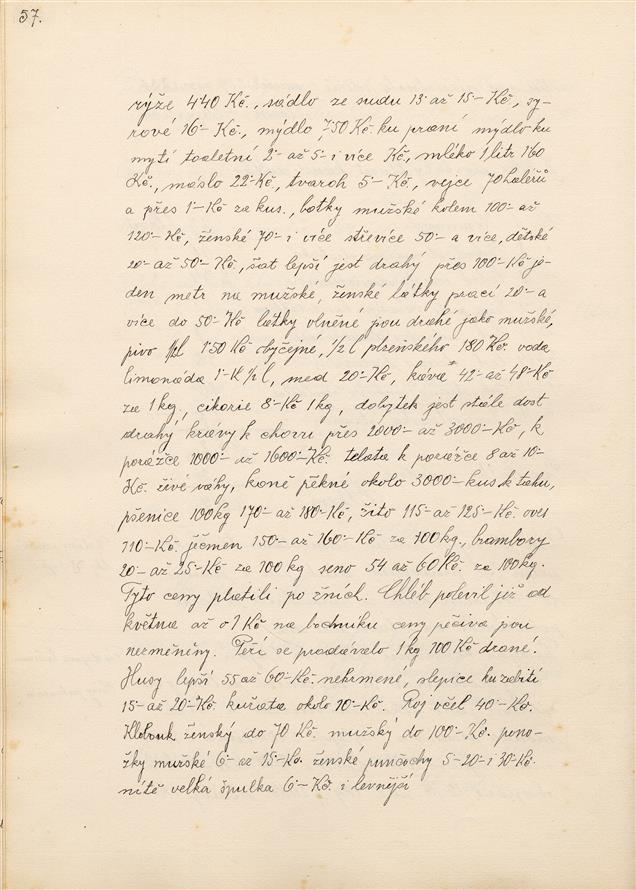 57.
rýže 4·40 Kč., sádlo ze sudu 13 až 15·– Kč, sy-
rové 16·– Kč., mýdlo 7·50 Kč. ku praní mýdlo ku
mytí toaletní 2·– až 5·– i více Kč, mléko 1 litr 1·60
Kč., máslo 22·–Kč, tvaroh 5·– Kč, vejce 70 haléřů
a přes 1·–Kč za kus., botky mužské kolem 100·– až
120·– Kč, ženské 70·– i více střevíce 50·– a více, dětské
20·– až 50·– Kč., šat lepší jest drahý přes 100·–Kč je-
den metr na mužské, ženské látky prací 20·– a
více do 50·– Kč látky vlněné jsou drahé jako mužské,
pivo ½l 1·50 Kč obyčejné, 1/2 l plzeňského 1·80 Kč. voda
limonáda 1·–K ½ l, med 20·–Kč, káva 42·– až 48·–Kč
za 1 kg., cikorie 8·–Kč 1 kg, dobytek jest stále dost
drahý krávy k chovu přes 2000·– až 3000·–Kč, k
porážce 1000·– až 1600·–Kč. telata k porážce 8 až 10·–
Kč. živé váhy, koně pěkné okolo 3000·– kus k tahu,
pšenice 100 kg 170·– až 180·–Kč, žito 115·– až 125·–Kč. oves
110·–Kč. ječmen 150·– až 160·–Kč za 100 kg., brambory
20·– až 25·–Kč za 100 kg seno 54 až 60 Kč. za 100 kg.
Tyto ceny platili po žních. Chléb polevil již od
května až o 1 Kč na bochníku ceny pečiva jsou
nezměněny. Peří se prodávalo 1 kg 100 Kč drané.
Husy lepší 55 až 60·–Kč. nekrmené, slepice ku zabití
15·– až 20·–Kč kuřata okolo 10·–Kč. Roj včel 40·–Kč.
Klobouk ženský do 70 Kč. mužský do 100·–Kč. pono-
žky mužské 6·– až 15·–Kč. ženské punčochy 5·–20·– i 30·–Kč.
nitě velká špulka 6·–Kč. i levnější